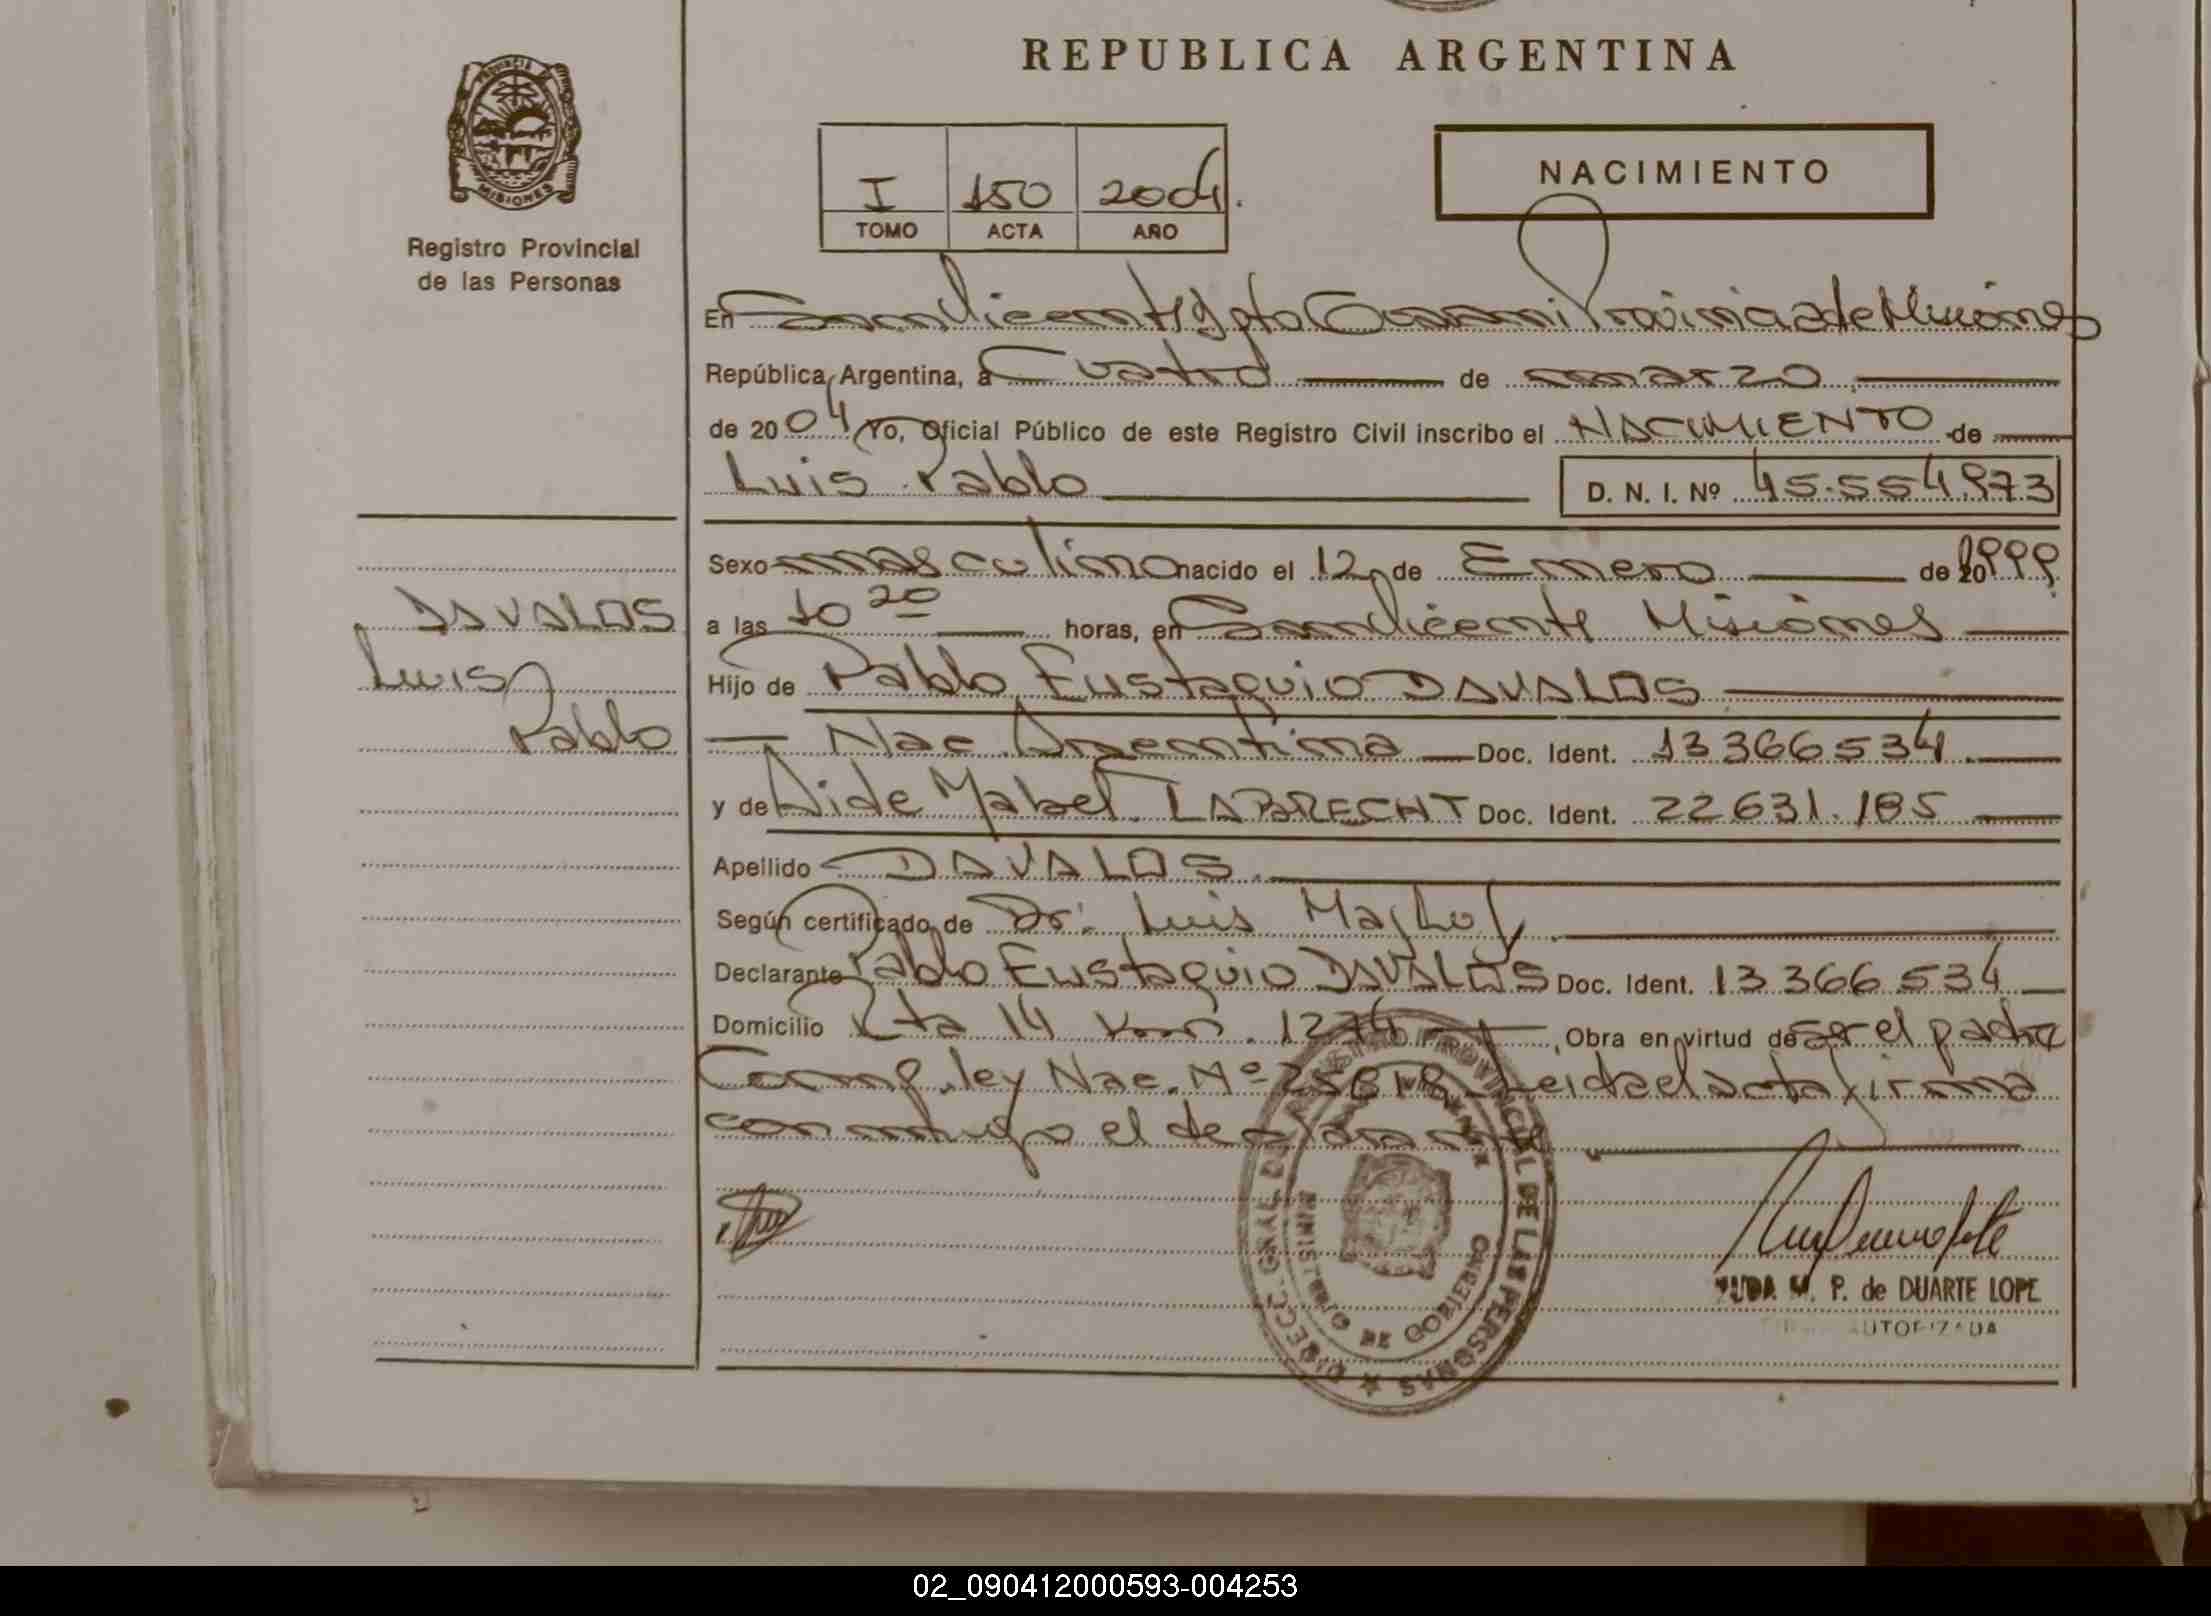 REPUBLICA ARGENTINA
PROVINCIA DE
MISIONES
Registro Provincial
de las Personas
I 150 2004.
TOMO ACTA AÑO
NACIMIENTO
En San Vicente Dpto Guarani Provincia de Misiones
República Argentina, a Cuatro de marzo
de 2004 Yo, Oficial Público de este Registro Civil inscribo el NACIMIENTO de
Luis Pablo D. N. I. Nº 45.554.973
Sexo masculino nacido el 12 de Enero de 1999
DAVALOS
Luis
Pablo
a las 10 20 horas, en San Vicente Misiones
Hijo de Pablo Eustaquio DAVALOS
Nac Argentina Doc. Ident. 13366534
y de Aide Mabel Doc. Ident. 22631.185
Apellido DAVALOS
Según certificado de Dr. Luis
Declarante Pablo Eustaquio DAVALOS Doc. Ident. 13366534
Domicilio Rta 14 Km. 1274 , Obra en virtud de ser el padre
Comp. ley Nac. Nº 25818 Leida el acta firma
conmigo el declarante
DIRECC. GRAL. DEL REGISTRO PROVINCIAL DE LAS PERSONAS
MINISTERIO DE GOBIERNO
M. P. de DUARTE LOPE
AUTORIZADA
02_090412000593-004253